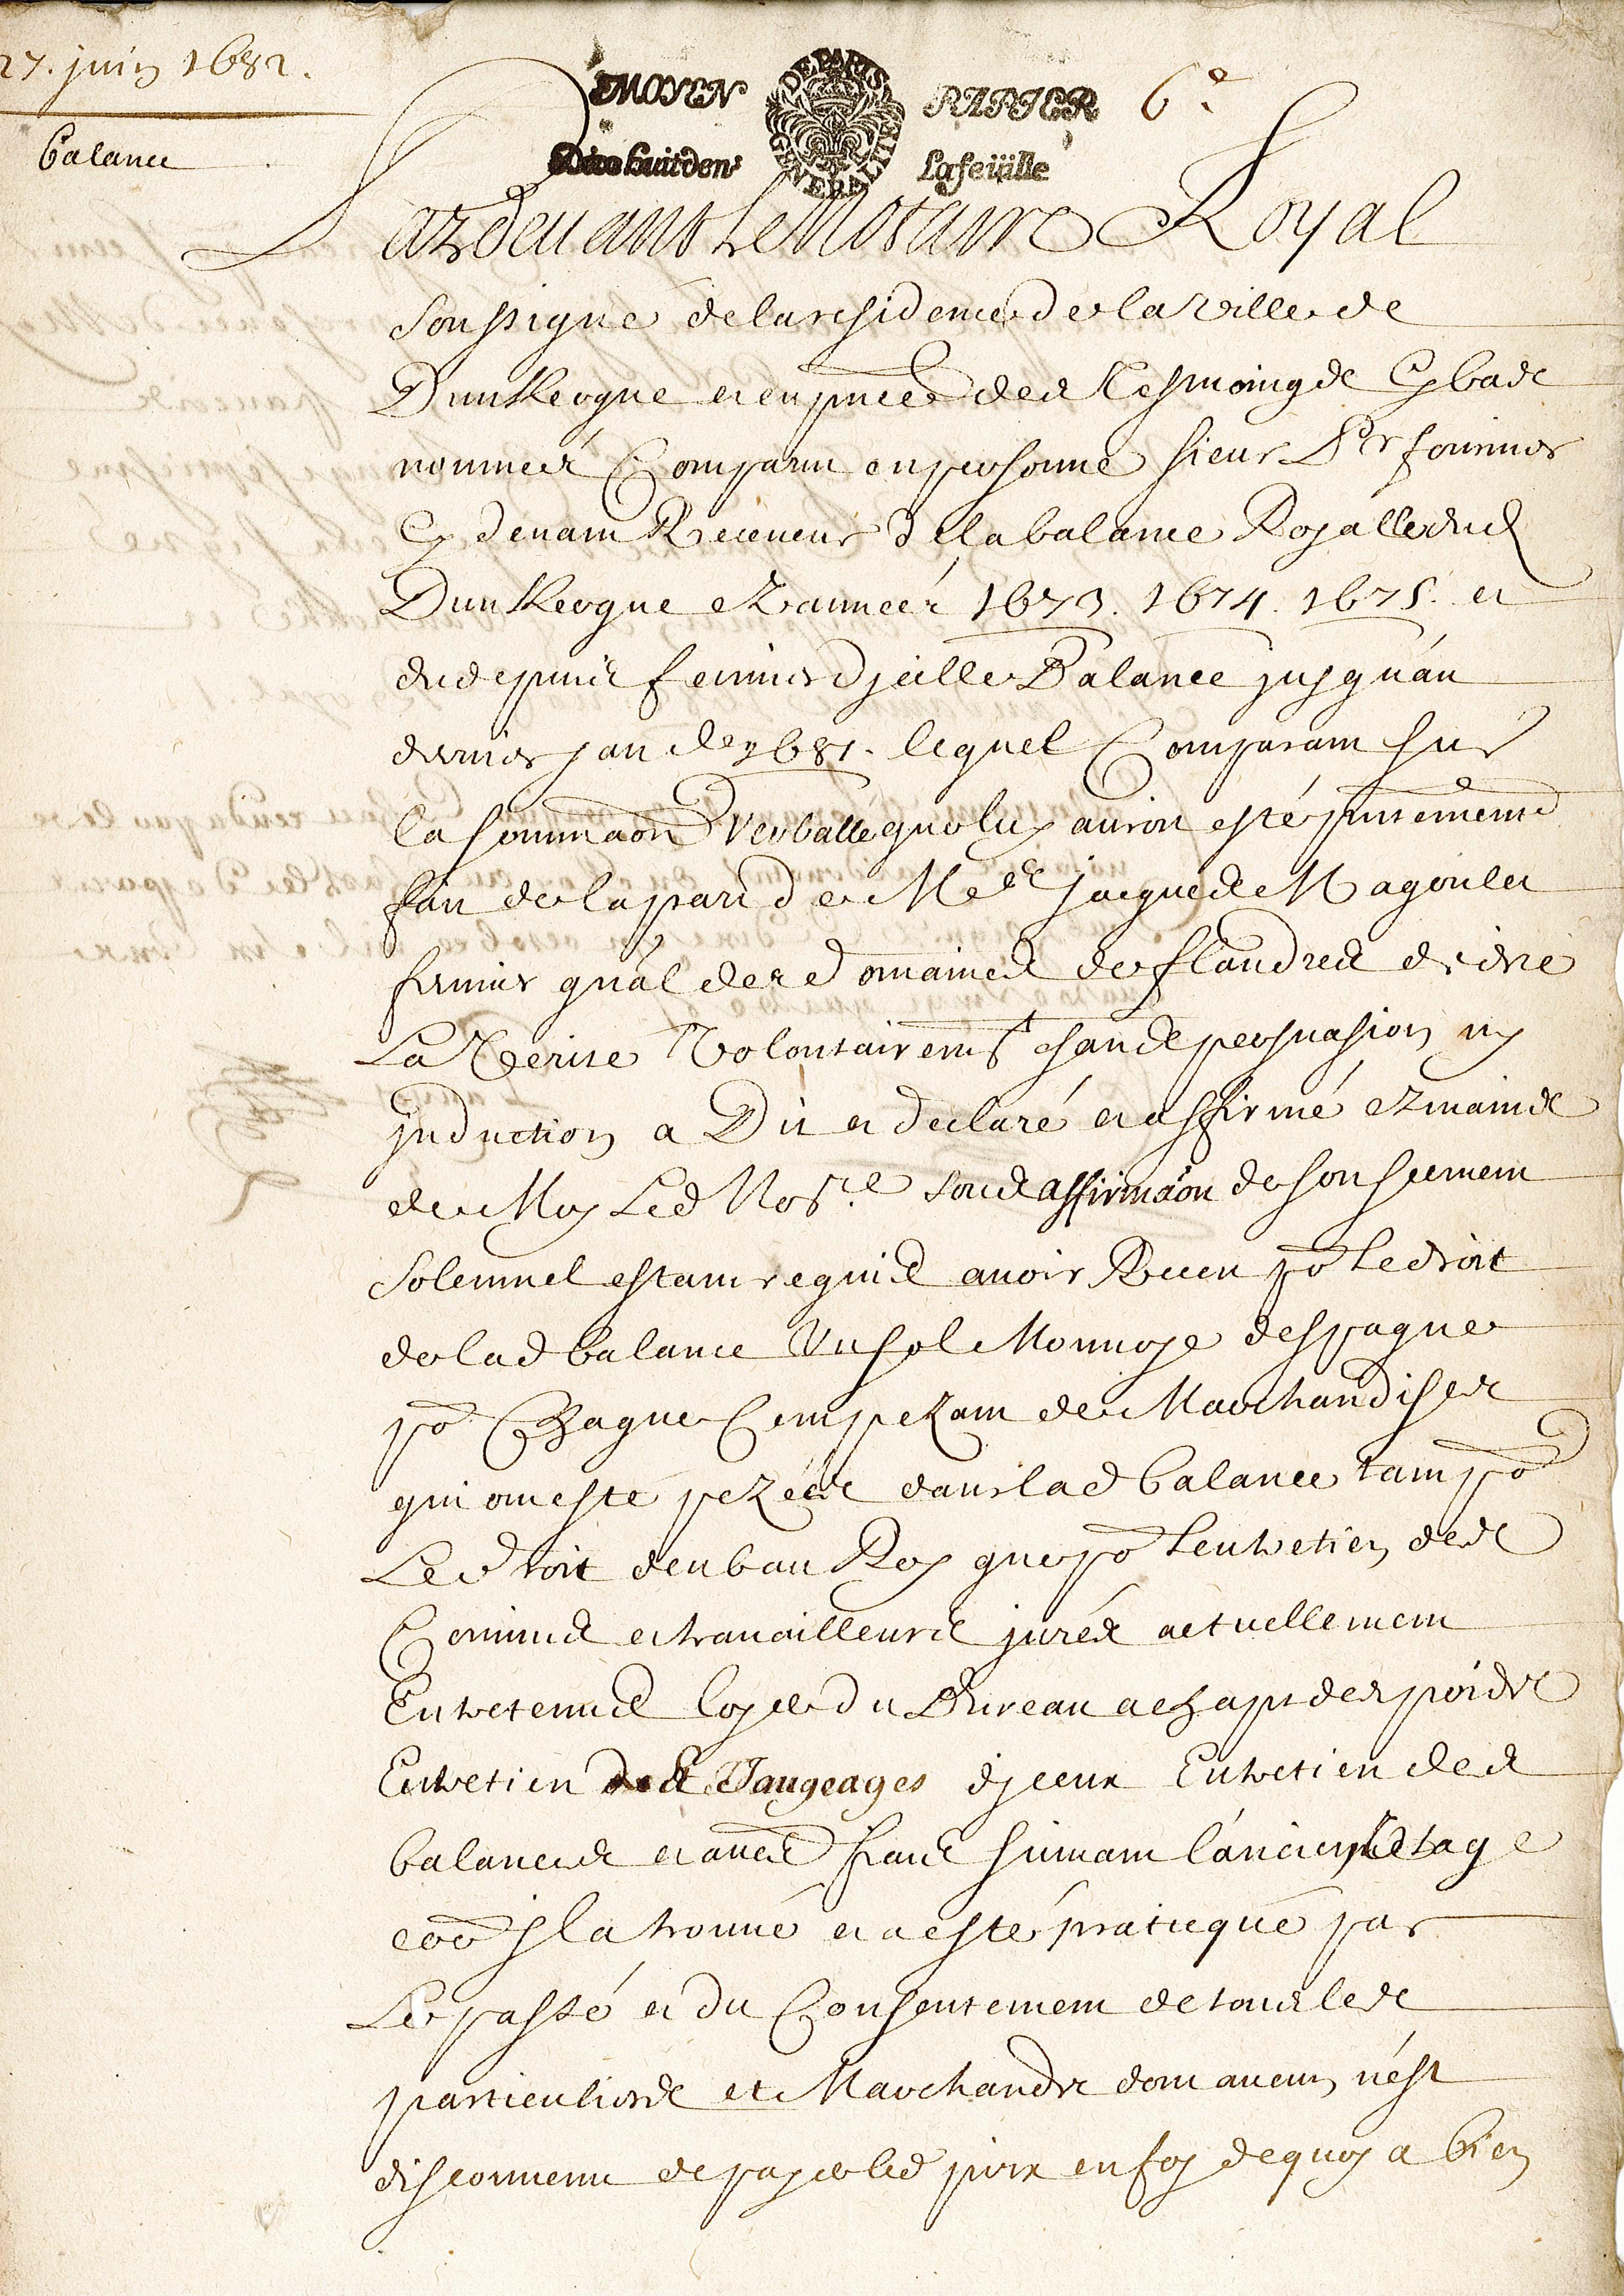 27. juin 1682.
balance
MOYEN PAPIER 6e.
DE PARIS GENERALITE
Dixhuit den.s La feüille
Pardeuant Le Notaire Royal
soussigné de la residence de la ville de
Dunkerque et en pnce des Tesmoings Cy bas
nommés Comparu en personne sieur Pr fournier
Cy deuant Receueur de la balance Royalle dud
Dunkerque ez années 1673. 1674. 1675. et
du depuis fermier djcelle Balance jusqu'au
dernier jan de 1681. lequel Comparant sur
la sommaon verballe que luy auroit esté pntement
fait de la part de Me jacques Magoulet
fermier gnal des domaines de flandres de dire
La Verité Volontairemt sans persuasion ny
jnduction a Dit et declaré et affirmé ez mains
de Moy Led Not.re sous affirmaon de son serment
solemnel estant requis auoir Receu po Le droit
de lad balance Vn sol Monnoye despagne
po Chaque Cent pezant de Marchandises
qui ont esté pezées dans lad balance tant po
Le droit deub au Roy que po Lentretien des
Commis et trauailleurs jurés actuellement
Entretenus loyer du Bureau achapt des poids
Entretien des Jaugeages djceux Entretien des
balances et aues frais suiuant l'ancien vsage
coe jl a trouué et a esté practiqué par
Le passé et du Consentement de tous les
particuliers et Marchands dont aucun n'est
disconuenu de payer led prix en foy de quoy a bien